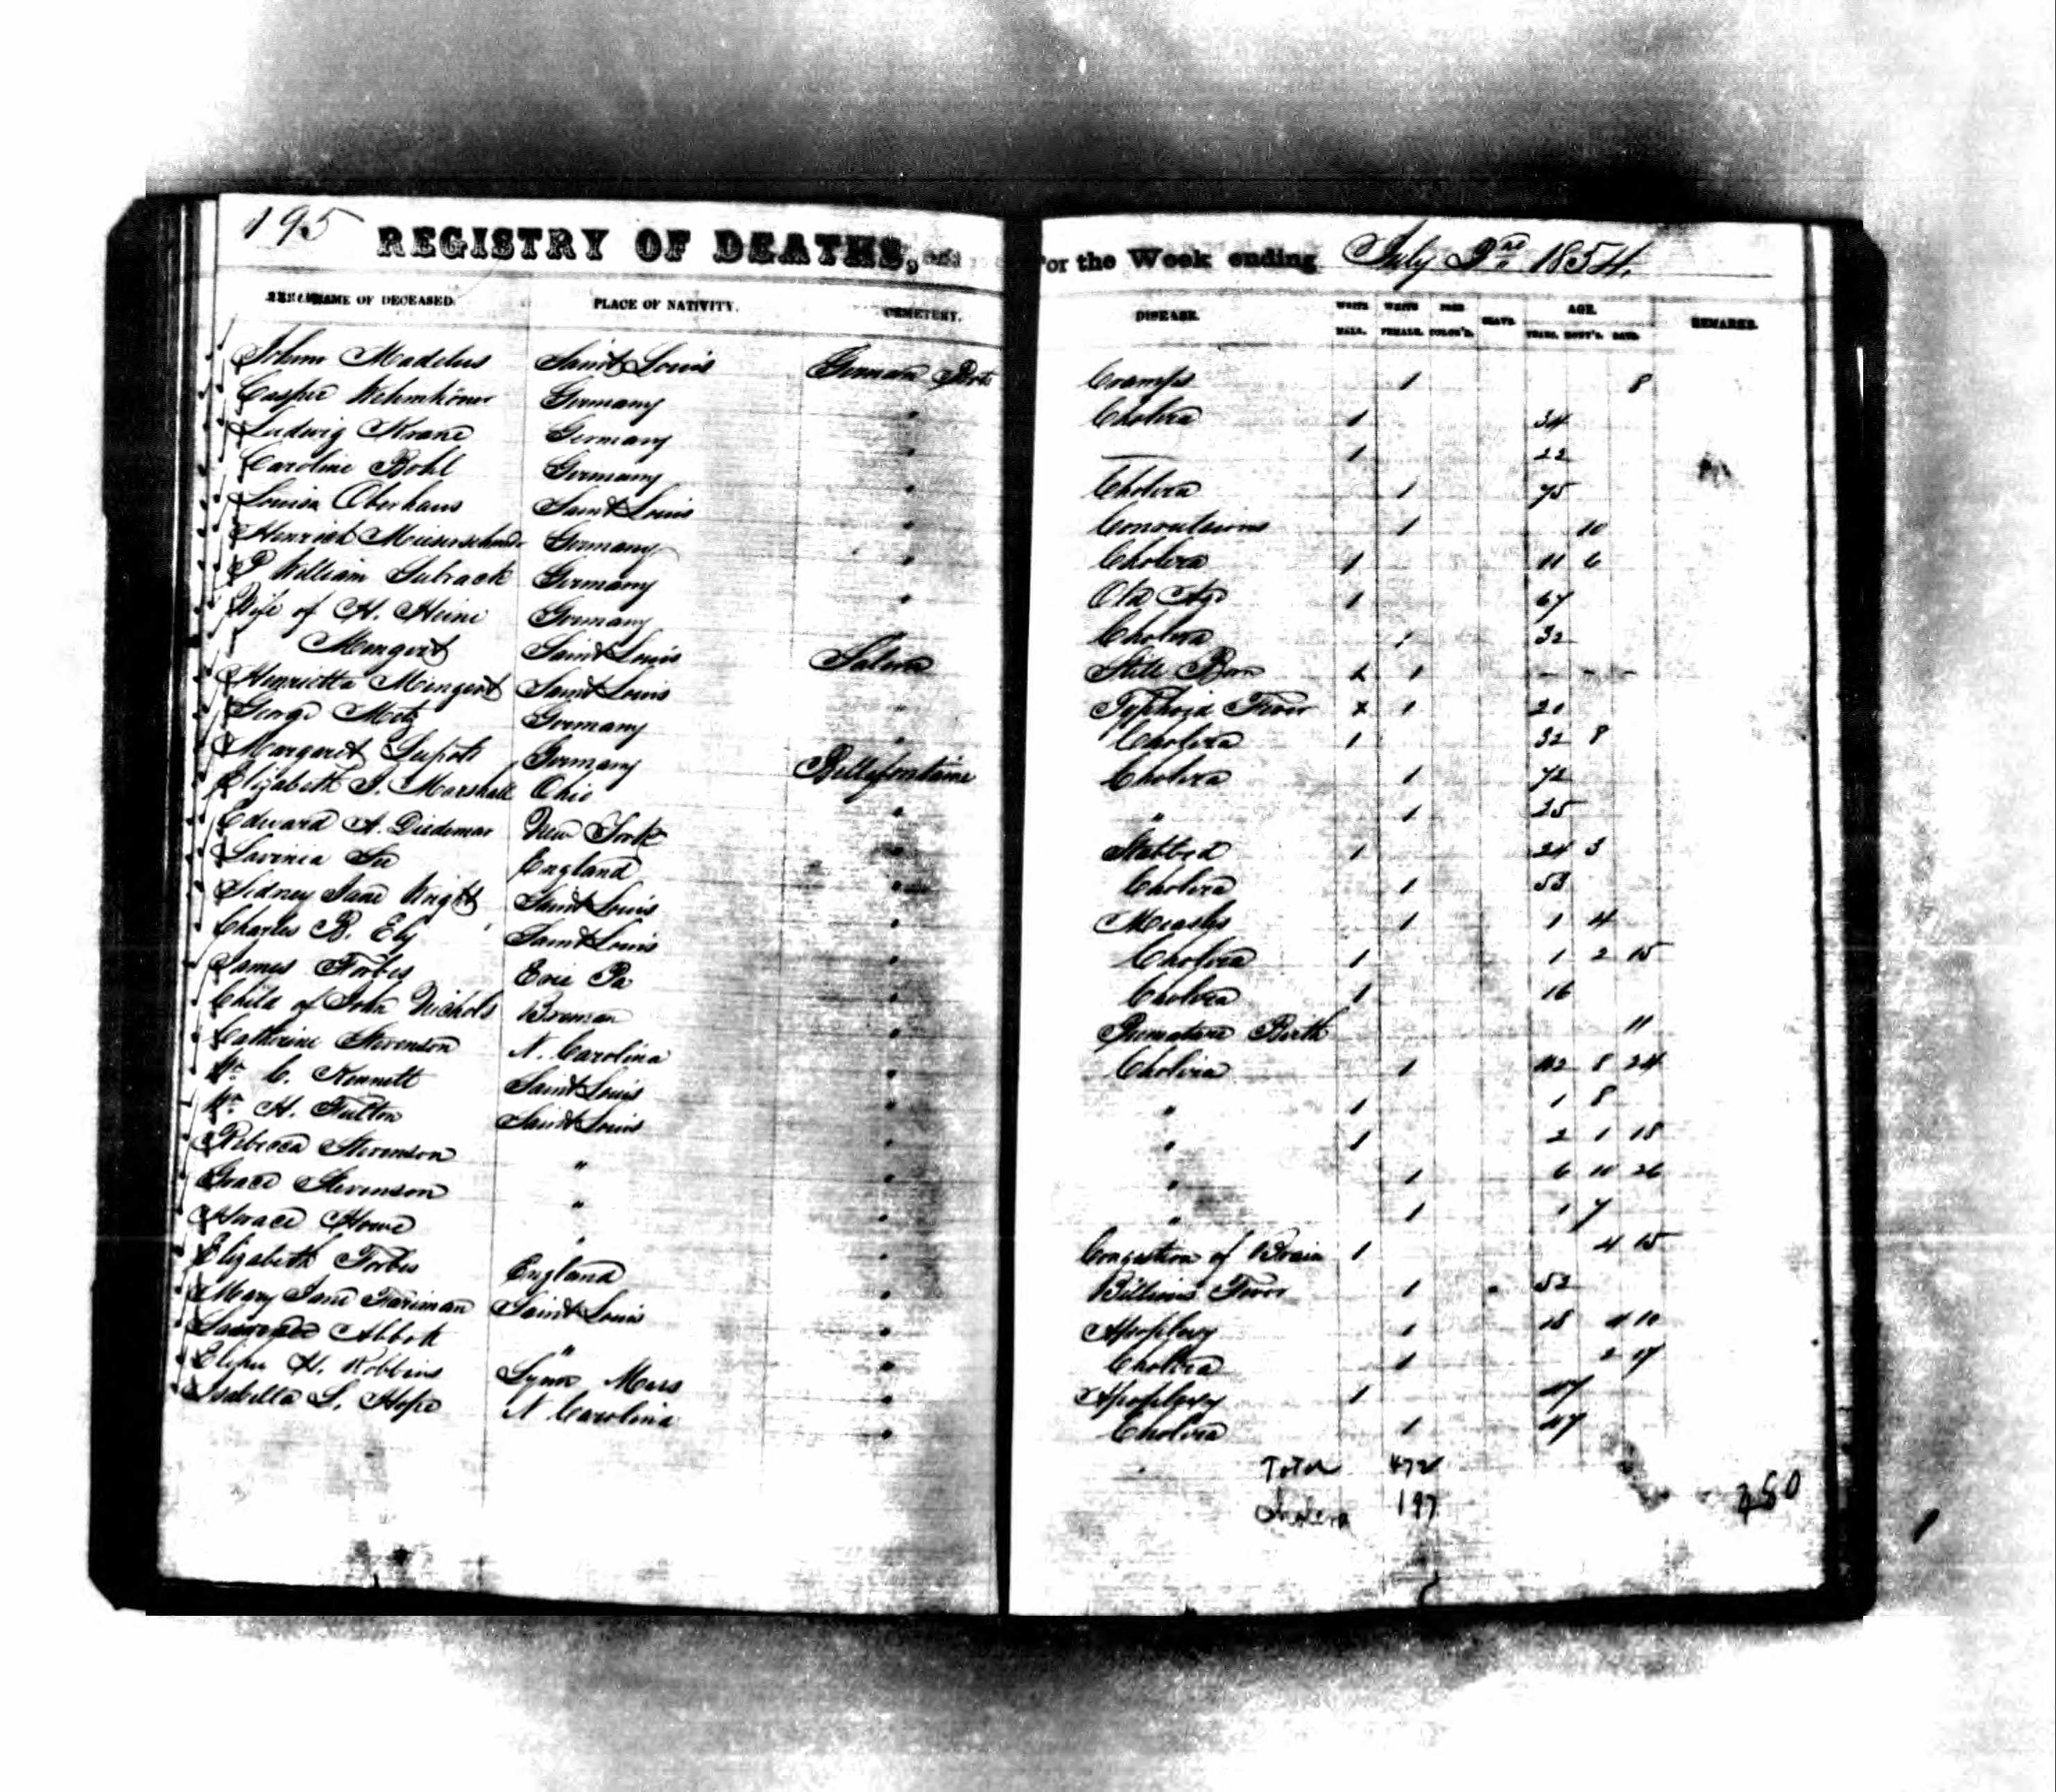 195 REGISTRY OF DEATHS, For the Week ending July 2nd 1854.
NAME OF DECEASED. PLACE OF NATIVITY. CEMETERY. DISEASE. WHITE MALE. WHITE FEMALE. FREE COLOR'D. SLAVE. AGE. YEARS. MONT'S. DAYS. REMARKS.
Johann Madelus Saint Louis German Prots Cramps 1 8
Casper Germany " Cholera 1 34
Ludwig Krane Germany " — 1 22
Caroline Bohl Germany " Cholera 1 75
Louisa Oberhaus Saint Louis " Convulsions 1 10
Henrich Germany " Cholera 1 11 6
William Germany " Old Age 1 67
Wife of H. Heine Germany " Cholera 1 32
Mengert Saint Louis Salem Still Born 1 - - -
Henrietta Mengert Saint Louis " Typhoid Fever x 1 20
George Metz Germany " Cholera 1 32 8
Margaret Germany Cholera 1 72
Elizabeth J. Marshall Ohio Bellefontaine " 1 25
Edward A. Diedemar New York " Stabbed 1 24 3
Lavinia England " Cholera 1 53
Sidney Jane Wright Saint Louis " Measles 1 1 4
Charles B. Ely Saint Louis " Cholera 1 1 2 15
James Forbes Erie Pa " Cholera 1 16
Child of John Nichols Bremen " Premature Birth 11
Catherine Stevenson N. Carolina " Cholera 1 42 8 24
Wm C. Kennett Saint Louis " " 1 1 8
Wm H. Fulton Saint Louis " " 1 2 1 18
Rebecca Stevenson " " " 1 6 10 26
Grace Stevenson " " " 1 1 7
Horace Howe " " Congestion of Brain 1 4 15
Elizabeth Forbes England " Billious Fever 1 52
Mary Jane Fariman Saint Louis " Apoplexy 1 18 4 10
Abbott " " Cholera 1 2 17
Elihu H. Robbins Lynn Mass " Apoplexy 1 47
Isabella S. Hope N. Carolina " Cholera 1 47
Total 472
Cholera 197